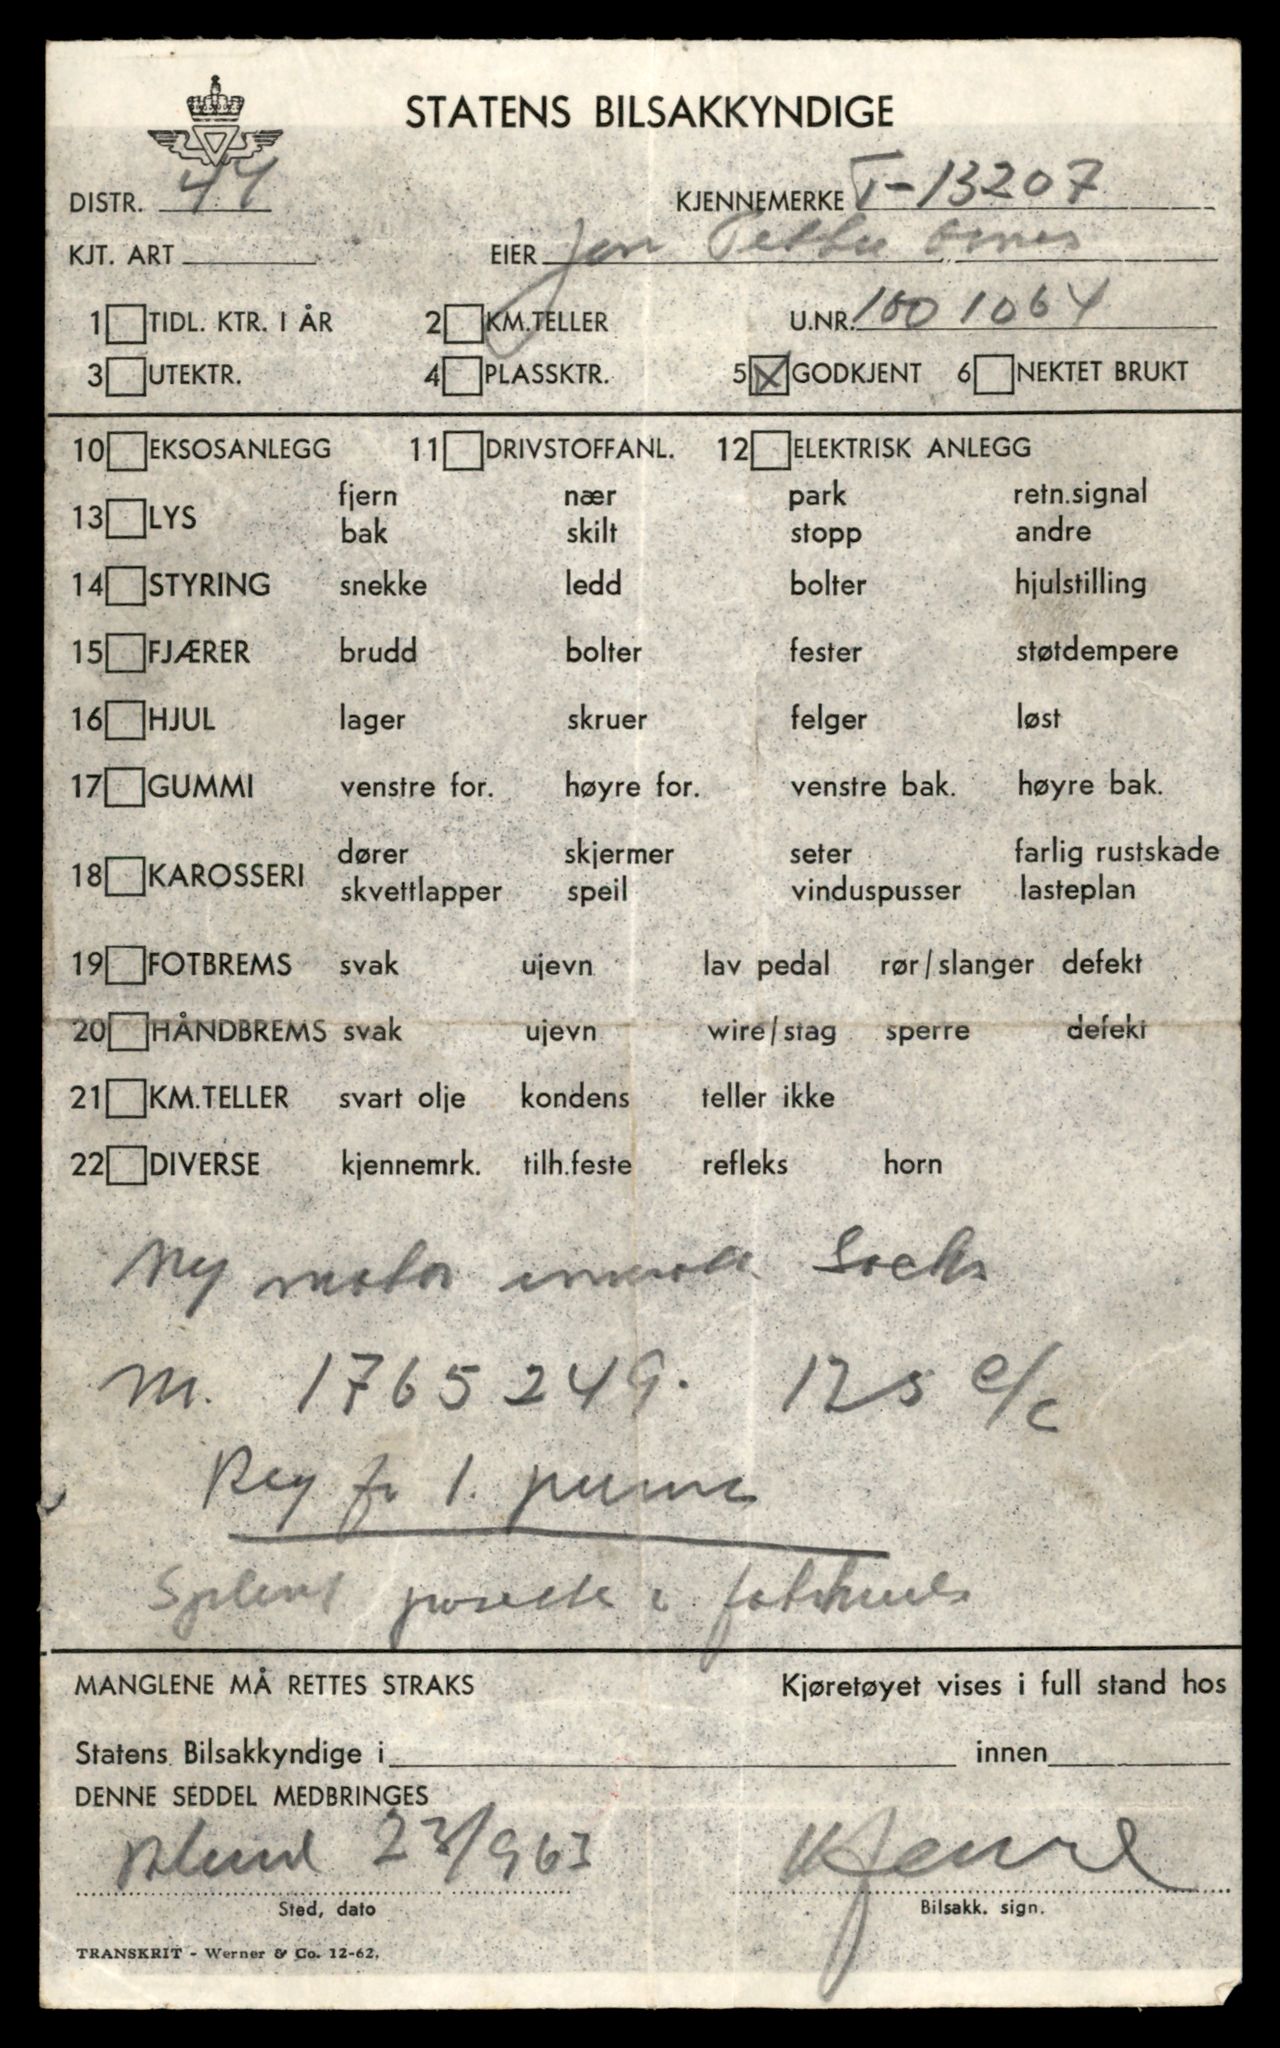 STATENS BILSAKKYNDIGE
DISTR. 44 KJENNEMERKE T-13207
KJT. ART EIER Jon Petter
1 TIDL. KTR. I ÅR 2 KM.TELLER U.NR. 1001064
3 UTEKTR. 4 PLASSKTR. 5 GODKJENT 6 NEKTET BRUKT
10 EKSOSANLEGG 11 DRIVSTOFFANL. 12 ELEKTRISK ANLEGG
fjern nær park retn.signal
13 LYS
bak skilt stopp andre
14 STYRING snekke ledd bolter hjulstilling
15 FJÆRER brudd bolter fester støtdempere
16 HJUL lager skruer felger løst
17 GUMMI venstre for. høyre for. venstre bak. høyre bak.
dører skjermer seter farlig rustskade
18 KAROSSERI
skvettlapper speil vinduspusser lasteplan
19 FOTBREMS svak ujevn lav pedal rør/slanger defekt
20 HÅNDBREMS svak ujevn wire/stag sperre defekt
21 KM.TELLER svart olje kondens teller ikke
22 DIVERSE kjennemrk. tilh.feste refleks horn
Ny motor innsatt Sachs
M. 1765249. 125 c/c
Reg for 1. person
i
MANGLENE MÅ RETTES STRAKS Kjøretøyet vises i full stand hos
Statens Bilsakkyndige i innen
DENNE SEDDEL MEDBRINGES
23/9 63
Sted, dato Bilsakk. sign.
TRANSKRIT - Werner & Co. 12-62.